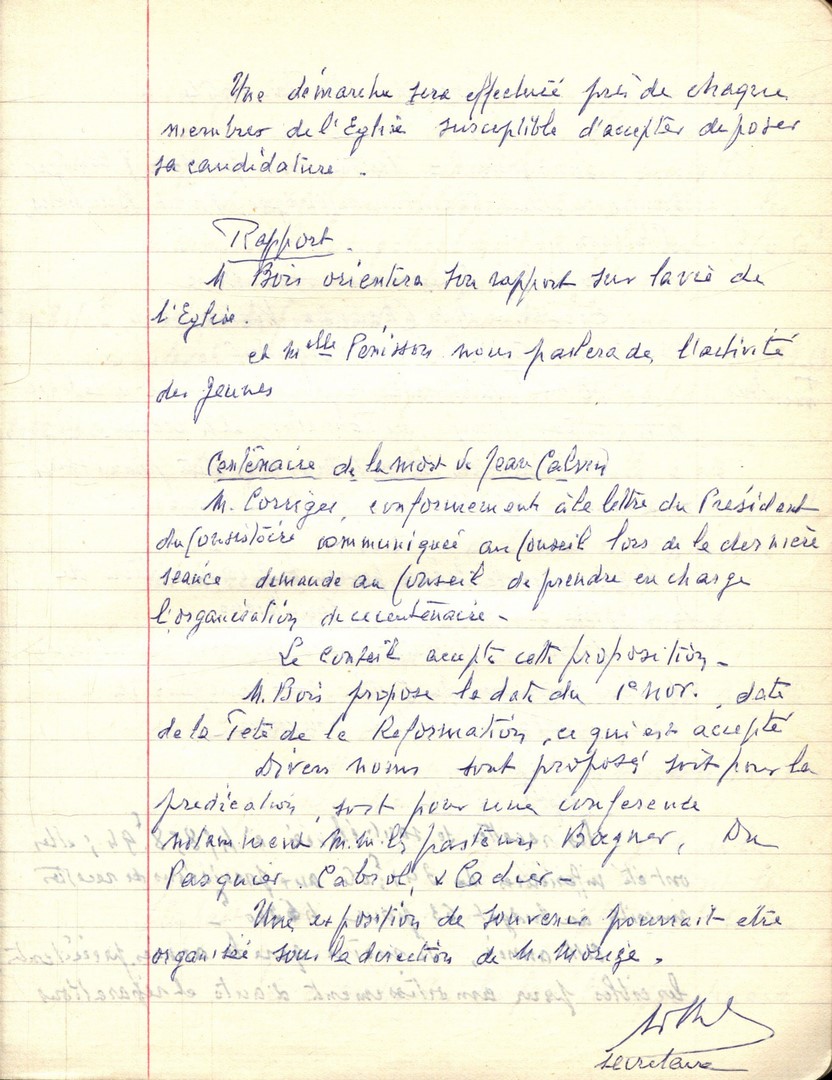 Une démarche sera effectuée près de chaque
membres de l'Eglise susceptible d'accepter de poser
sa candidature.
Rapport.
M Bois orientera son rapport sur la vie de
l'Eglise.
et Melle Penisson nous parlera de l'activité
des jeunes
Centenaire de la mort de Jean Calvin
M. Corriges, conformement à la lettre du Président
du Consistoire communiquée au Conseil lors de la dernière
séance demande au Conseil de prendre en charge
l'organisation de ce centenaire -
Le conseil accepte cette proposition -
M. Bois propose la date du 1e Nov. date
de la Fête de la Reformation, ce qui est accepté
Divers noms sont proposés soit pour la
predication, soit pour une conference
notamment M.M. les pasteurs Bagner, Du
Pasquier. Cabrol, & Cadier -
Une exposition de souvenir pourrait etre
organisée sous la direction de M. Morize.
secretaire